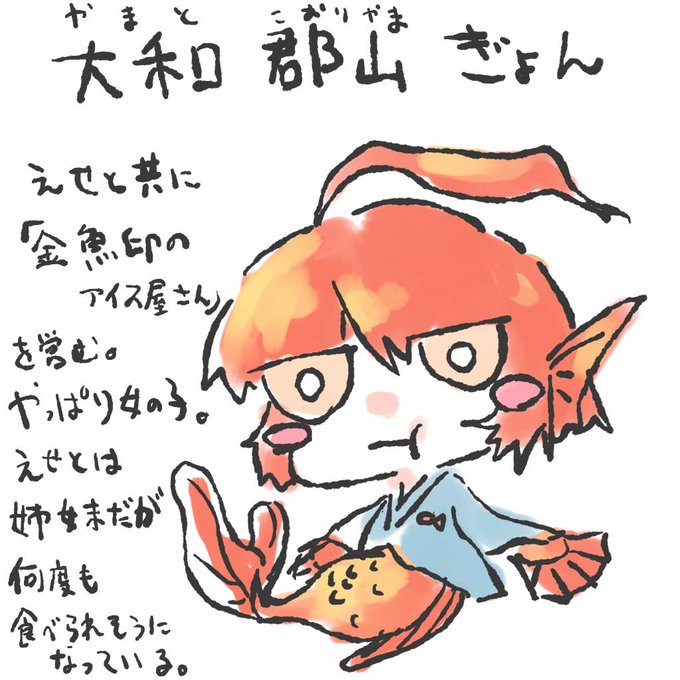 やまと こおりやま
大和 郡山 ぎょん
えせと共に
「金魚印の
アイス屋さん」
を営む。
やっぱり女の子。
えせとは
姉妹だが
何度も
食べられそうに
なっている。